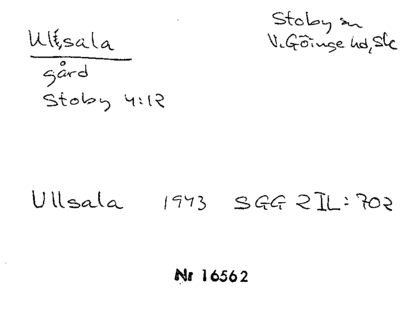 Ullsala
Stoby sn
V. Göinge hd, Sk
gård
Stoby 4:12
Ullsala 1943 SGG 2 IL: 702
Nr 16562